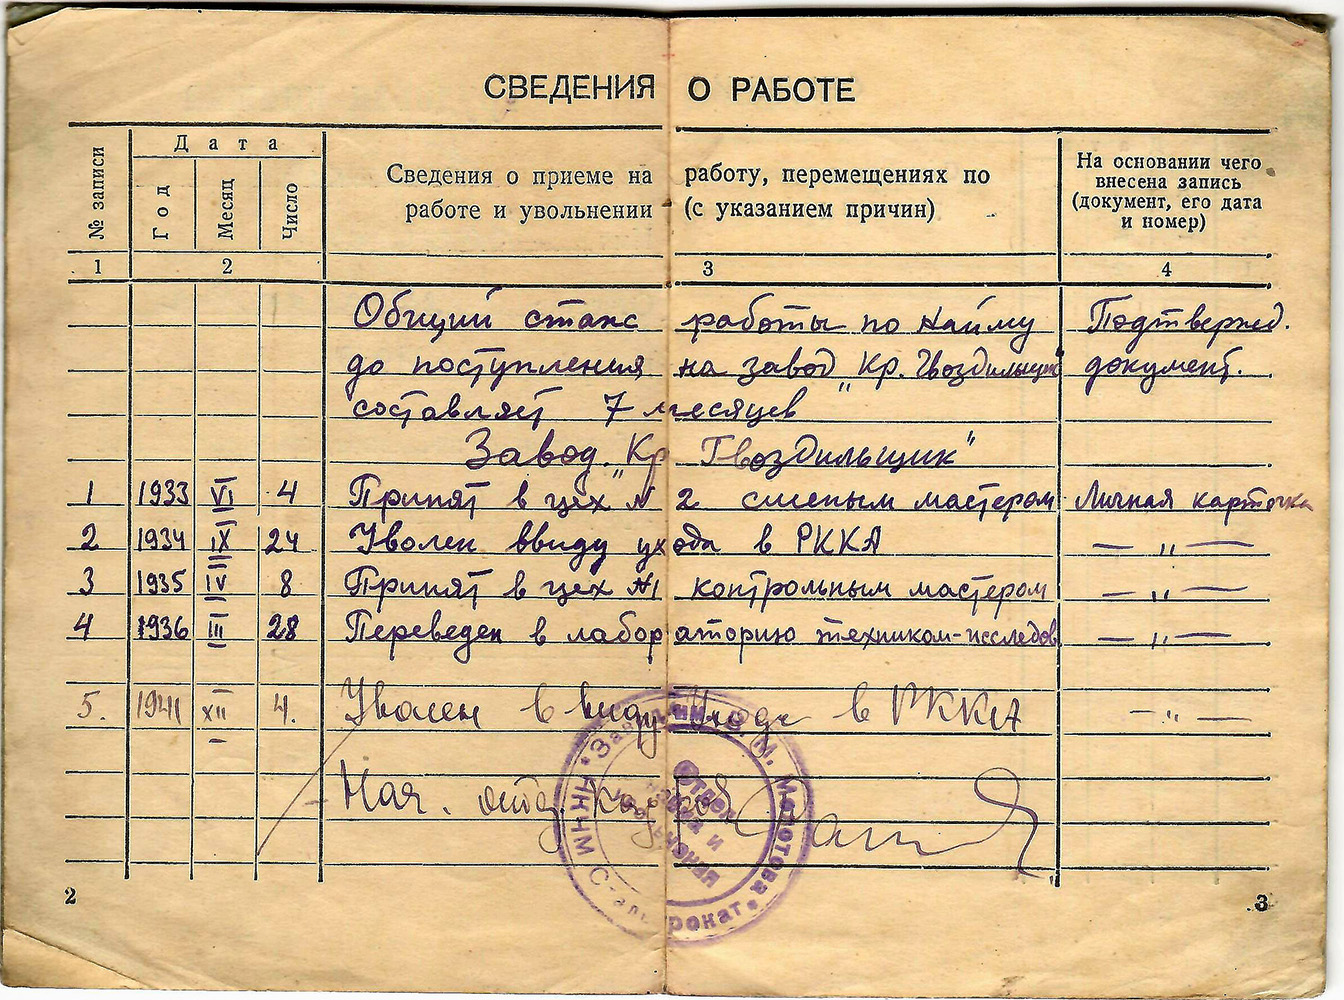 СВЕДЕНИЯ О РАБОТЕ
№ записи
Дата
Год
Месяц
Число
Сведения о приеме на работу, перемещениях по
работе и увольнении (с указанием причин)
На основании чего
внесена запись
(документ, его дата
и номер)
1 2 3 4
Общий стаж работы по найму Подтвержд.
до поступления на завод „Кр. Гвоздильщик" документ.
составляет 7 месяцев
Завод „Кр Гвоздильщик"
1 1933 VI 4 Принят в цех № 2 сменым мастером Личная карточка
2 1934 IX 24 Уволен ввиду ухода в РККА — „ —
3 1935 IV 8 Принят в цех №1 контрольным мастером — „ —
4 1936 III 28 Переведен в лабораторию техником-исследов — „ —
5. 1941 XII 4. Уволен в виду ухода в РККА — „ —
Нач. отд. кадров
Отдел
найма и
увольнения
Молотова
2
3